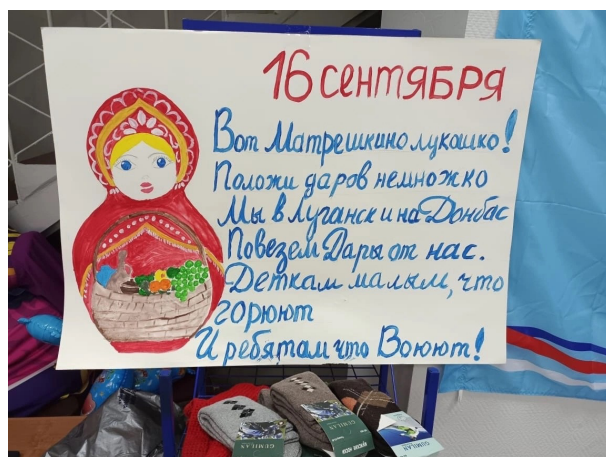 16 сентября
Вот Матрешкино лукошко!
Положи даров немножко
Мы в Луганск и на Донбас
Повезем Дары от нас.
Деткам малым, что
горюют
И ребятам что Воюют!
GEMILAN
GUMILAN